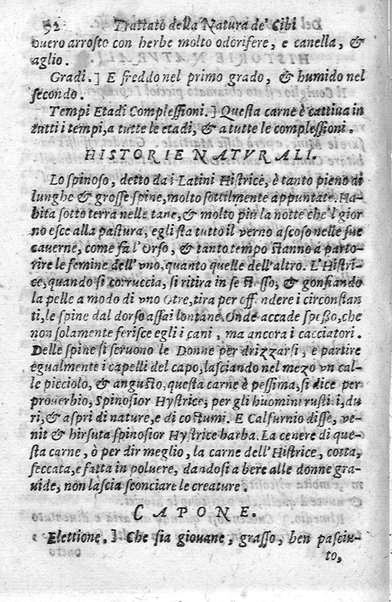 52 Trattato della Natura de' Cibi
ouero arrosto con herbe molto odorifere, e canella, &
aglio.
Gradi.] E freddo nel primo grado, & humido nel
secondo.
Tempi Etadi Complessioni.] Questa carne è cattiua in
tutti i tempi, a tutte le etadi, & a tutte le complessioni.
HISTORIE NATVRALI.
Lo spinoso, detto da i Latini Histrice, è tanto pieno di
lunghe & grosse spine, molto sottilmente appuntate. Ha-
bita sotto terra nelle tane, & molto più la notte che'l gior
no esce alla pastura, egli sta tutto il verno ascoso nelle sue
cauerne, come fa l'Orso, & tanto tempo stanno a parto-
rire le femine dell'vno, quanto quelle dell'altro. L'Histri-
ce, quando si corruccia, si ritira in se stesso, & gonfiando
la pelle a modo di vno Otre, tira per offendere i circonstan
ti, le spine dal dorso assai lontane. Onde accade spesso, che
non solamente ferisce egli i cani, ma ancora i cacciatori.
Delle spine si seruono le Donne per drizzarsi, e partire
egualmente i capelli del capo, lasciando nel mezo vn cal-
le picciolo, & angusto, questa carne è pessima, si dice per
prouerbio, Spinosior Hystrice, per gli huomini rusti i, du
ri, & aspri di nature, e di costumi. E Calfurnio disse, ve-
nit & hirsuta spinosior Hystrice barba. La cenere di que-
sta carne, ò per dir meglio, la carne dell'Histrice, cotta,
seccata, e fatta in poluere, dandosi a bere alle donne gra-
uide, non lascia sconciare le creature.
CAPONE.
Elettione.] Che sia giouane, grasso, ben pasciu-
to,